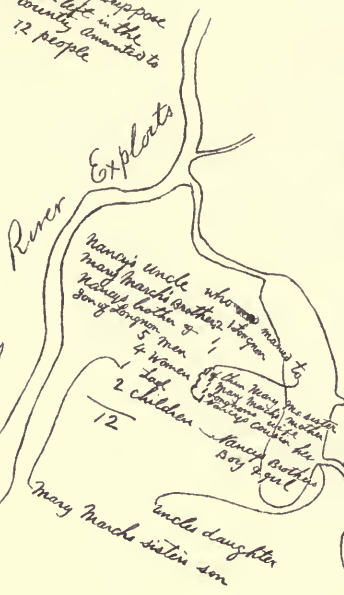 suppose
left in the
country amounted to
12 people
River Exploits
Nancy's uncle who married to
Mary March's Brother 2 Longnon
Nancy's brother of 1
Son of Longnon 1
5 men
4 women
1 Lad
2 children
12
1 Mary March's mother
1 Longnons wife
1 Nancys cousin her
Nancys Brothers
Boy & girl
uncles daughter
Mary Marchs sisters son